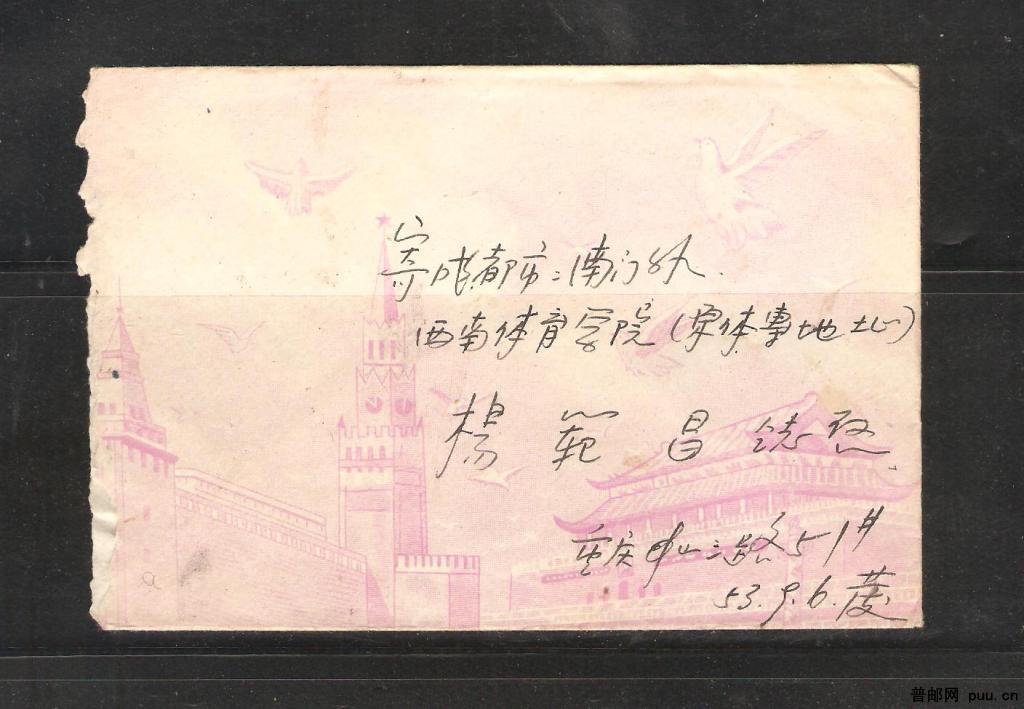 寄成都市:南门外.
西南体育学院(原体专地址)
楊範昌 啟.
重庆中山三路51#
53.9.6.
普邮网 puu.cn